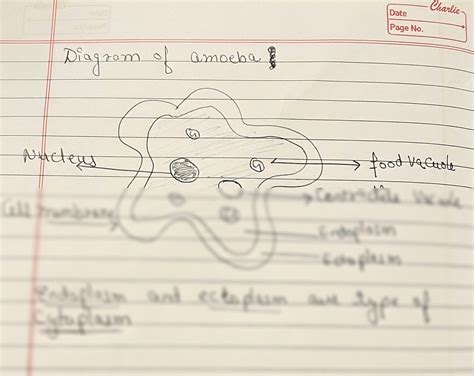 Charlie
Date
Page No.
Diagram of amoeba
Nucleus
food vacuole
Cell membrane
Endoplasm
Ectoplasm
Endoplasm and ectoplasm are type of
Cytoplasm